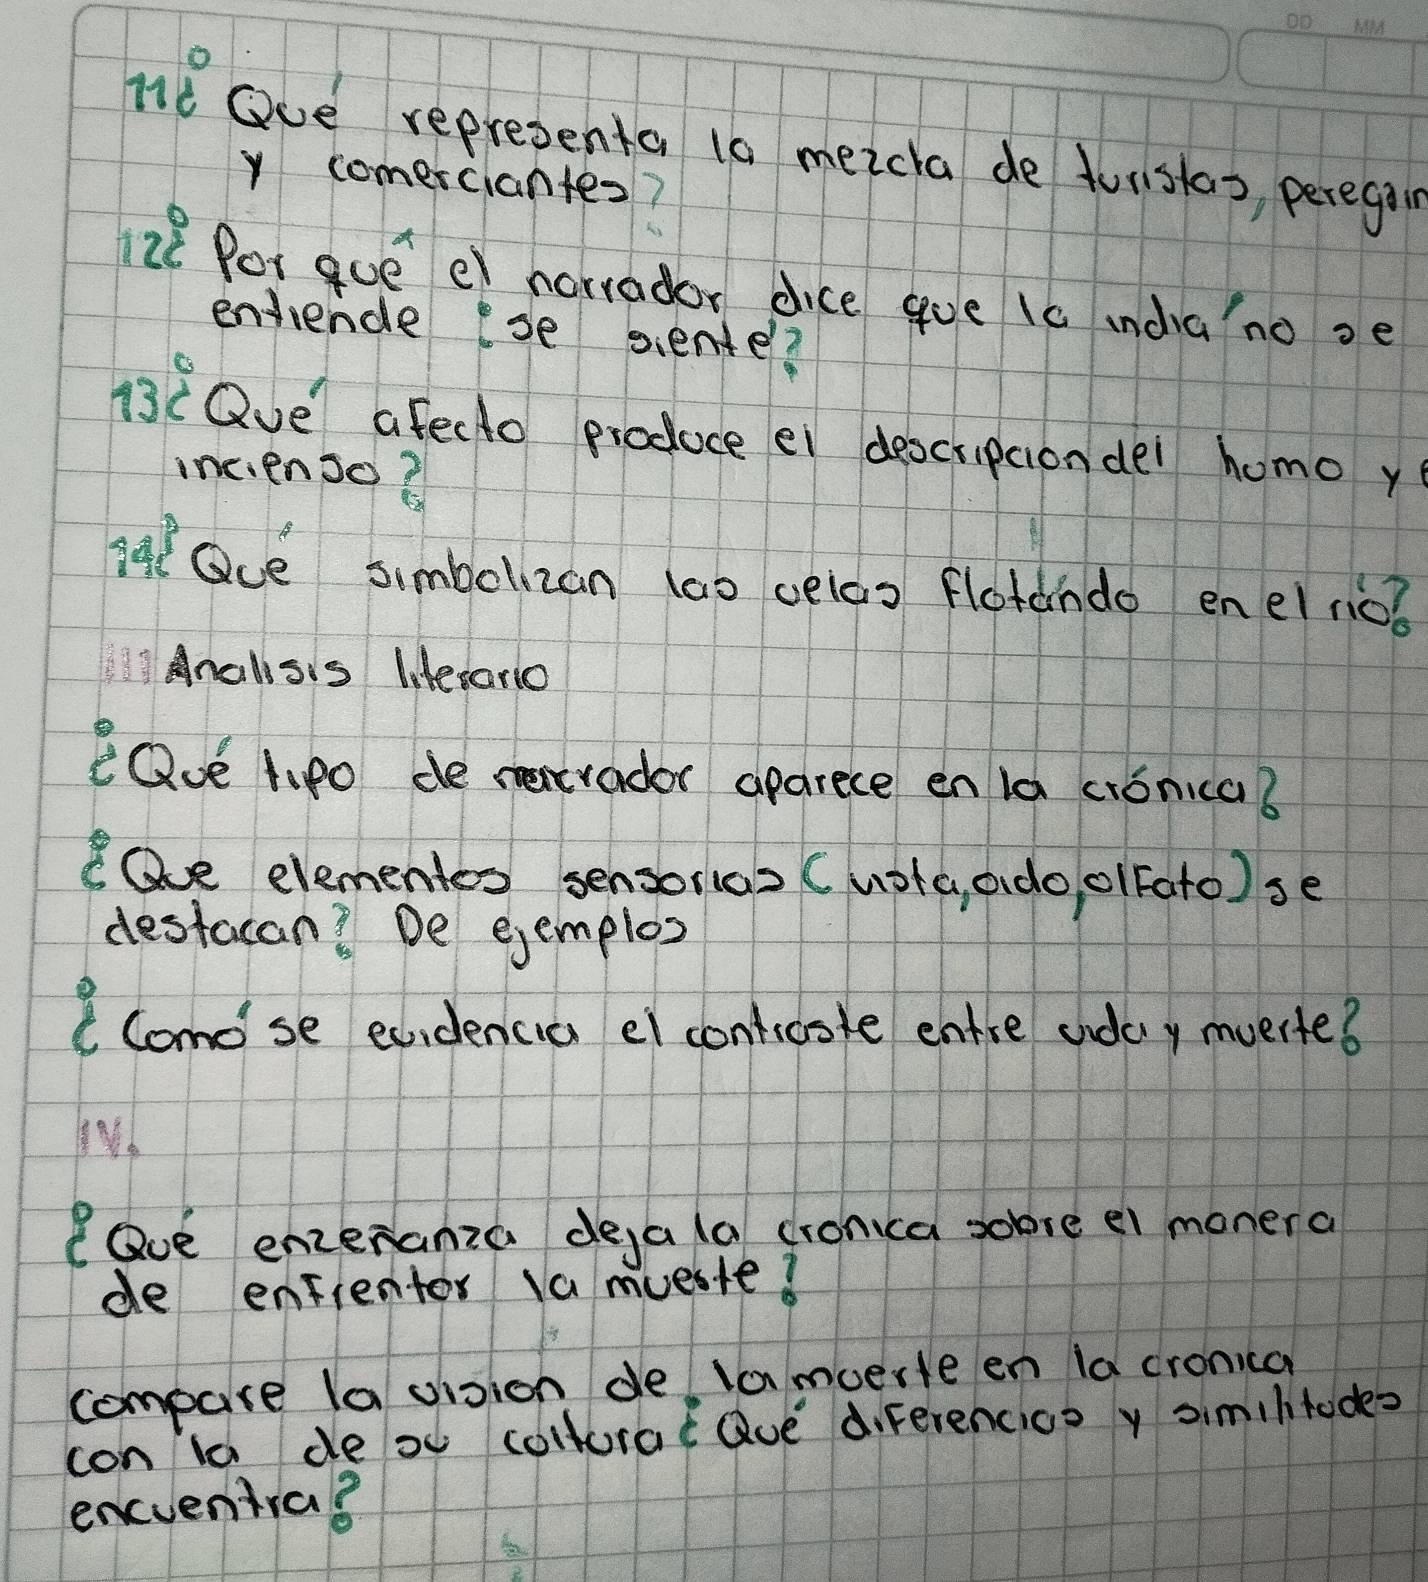 DD MM
11¿ Qué representa la mezcla de turistas, peregrin
y comerciantes?
12¿ Por qué el narrador dice que la india no se
entiende ¡se siente?
13¿ Qué afecto produce el descripcion del humo y e
incienso?
14¿ Qué simbolizan las velas flotándo en el río?
III Analisis literario
¿Qué tipo de narrador aparece en la crónica?
¿Que elementos sensorias (vista, oido, olfato) se
destacan? De ejemplos
¿Comó se evidencia el contraste entre vida y muerte?
IV.
¿Qué enzeñanza deja la cronica sobre el manera
de enfrentar la mueste?
compare la vision de la muerte en la cronica
con la de su coltura ¿Qué diferencias y similitudes
encuentra?